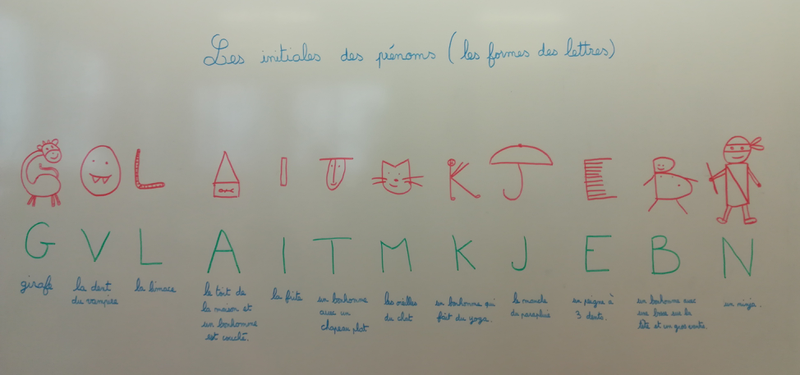 Les initiales des prénoms (les formes des lettres)
G V L A I T M K J E B N
girafe
la dent
du vampire
la limace
le toit de
la maison et
un bonhomme
est couché.
la frite
un bonhomme
avec un
chapeau plat
les oreilles
du chat
un bonhomme qui
fait du yoga.
le manche
du parapluie
un peigne à
3 dents.
un bonhomme avec
une bosse sur la
tête et un gros ventre.
un ninja.